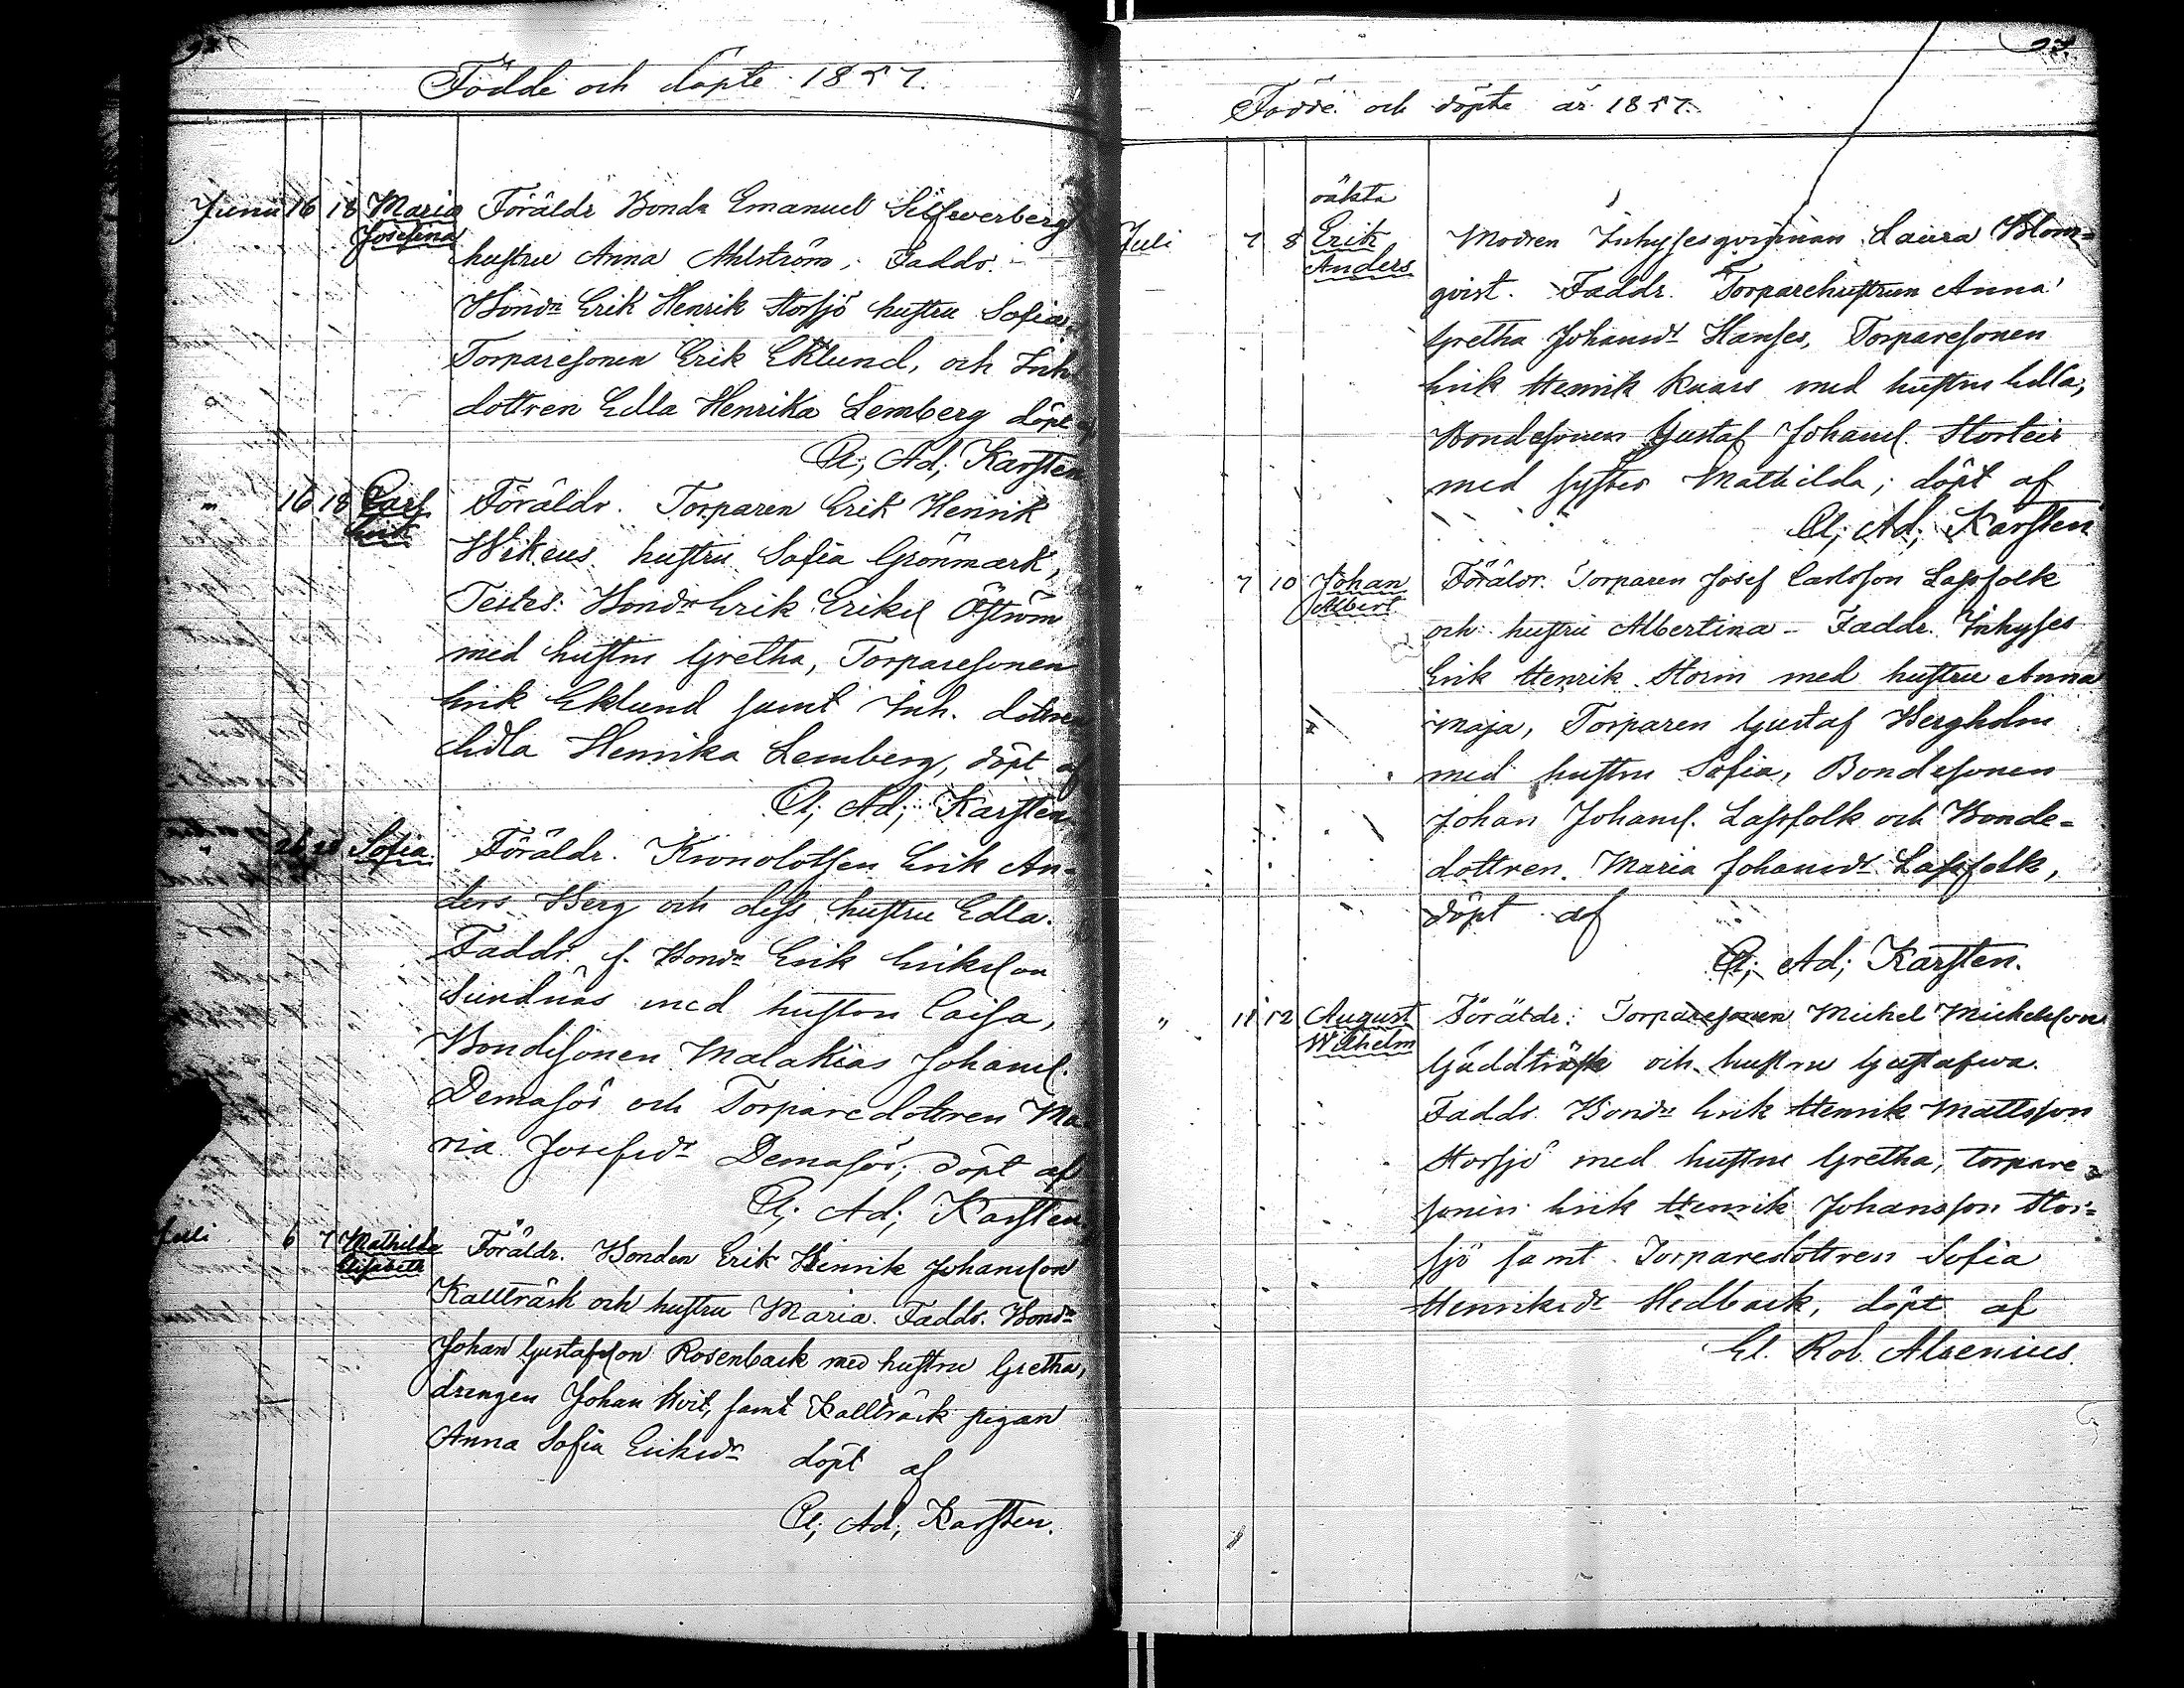 Födde och döpte 1857.
Junii 16 18 Maria Josefina Föräldr Bondn Emanuel Silfwerberg
hustru Anna Ahlström, Faddr.
Bondn Erik Henrik Storsjö hustru Sofia,
Torparesonen Erik Eklund, och Inh
dottren Edla Henrika Lemberg döpt af
Cl; Ad; Karsten
" 16 18 Carl Erik Föräldr. Torparen Erik Henrik
Wikeus hustru Sofia Grönmark,
Testes: Bondn Erik Eriks Öström
med hustru Gretha, Torparesonen
Erik Eklund samt Inh. dottren
Edla Henrika Lemberg, döpt af
Cl; Ad; Karsten
" 26 28 Sofia Föräldr. Kronolotsen Erik An-
ders Berg och dess hustru Edla.
Faddr. f. Bondn Erik Erikson
Sundnäs med hustru Caisa,
Bondesonen Malakias Johans.
Demasör och Torparedottren Ma-
ria Josefsdr Demasör; döpt af
Cl; Ad; Karsten
Juli 6 7 Mathilda Elisabeth Föräldr. Bonden Erik Henrik Johanson
Kallträsk och hustru Maria. Faddr. Bondn
Johan Gustafson Rosenback med hustru Gretha,
drengen Johan Hvit, samt Kallträsk pigan
Anna Sofia Eriksdr döpt af
Cl; Ad; Karsten.
Födde och döpte år 1857.
oäkta
Juli 7 8 Erik Anders Modren Inhyses qvinnan Laura Blom-
qvist. Faddr. Torparehustrun Anna
Gretha Johansdr Hanses, Torparesonen
Erik Henrik Knars med hustru Edla,
Bondesonen Gustaf Johans. Storteir
med syster Mathilda; döpt af
Cl; Ad; Karsten
" 7 10 Johan Albert Föräldr. Torparen Josef Carlsson Lassfolk
och hustru Albertina - Faddr. Inhyses
Erik Henrik Storm med hustru Anna
Maja, Torparen Gustaf Bergholm
med hustru Sofia, Bondesonen
Johan Johans. Lassfolk och Bonde-
dottren Maria Johansdr Lassfolk,
döpt af
Cl; Ad; Karsten.
" 11 12 August Wilhelm Föräldr: Torparesonen Michel Michelsson
Gäddträsk och hustru Gustafwa.
Faddr. Bondn Erik Henrik Mattsson
Storsjö med hustru Gretha, torpare-
sonen Erik Henrik Johansson Stor-
sjö samt Torparedottren Sofia
Henriksdr Hedback, döpt af
Cl. Rob. Alcenius.